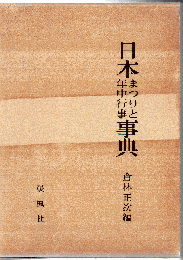 日本まつりと年中行事事典
倉林正次編
桜楓社